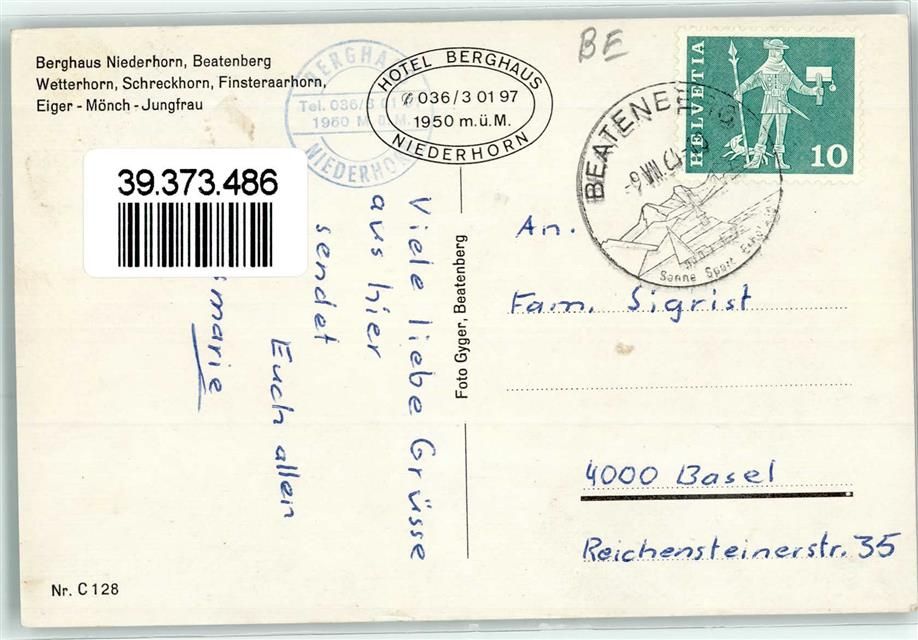 Berghaus Niederhorn, Beatenberg
Wetterhorn, Schreckhorn, Finsteraarhorn,
Eiger - Mönch - Jungfrau
BE
BERGHAUS
Tel. 036/3 01 97
1950 M.ü.M.
NIEDERHORN
HOTEL BERGHAUS
036/3 01 97
1950 m.ü.M.
NIEDERHORN
BEATENBERG
Sonne Sport
HELVETIA
10
39.373.486
Viele liebe Grüsse
aus hier
sendet
Euch allen
marie
Foto Gyger, Beatenberg
An.
Fam. Sigrist
4000 Basel
Reichensteinerstr. 35
Nr. C 128